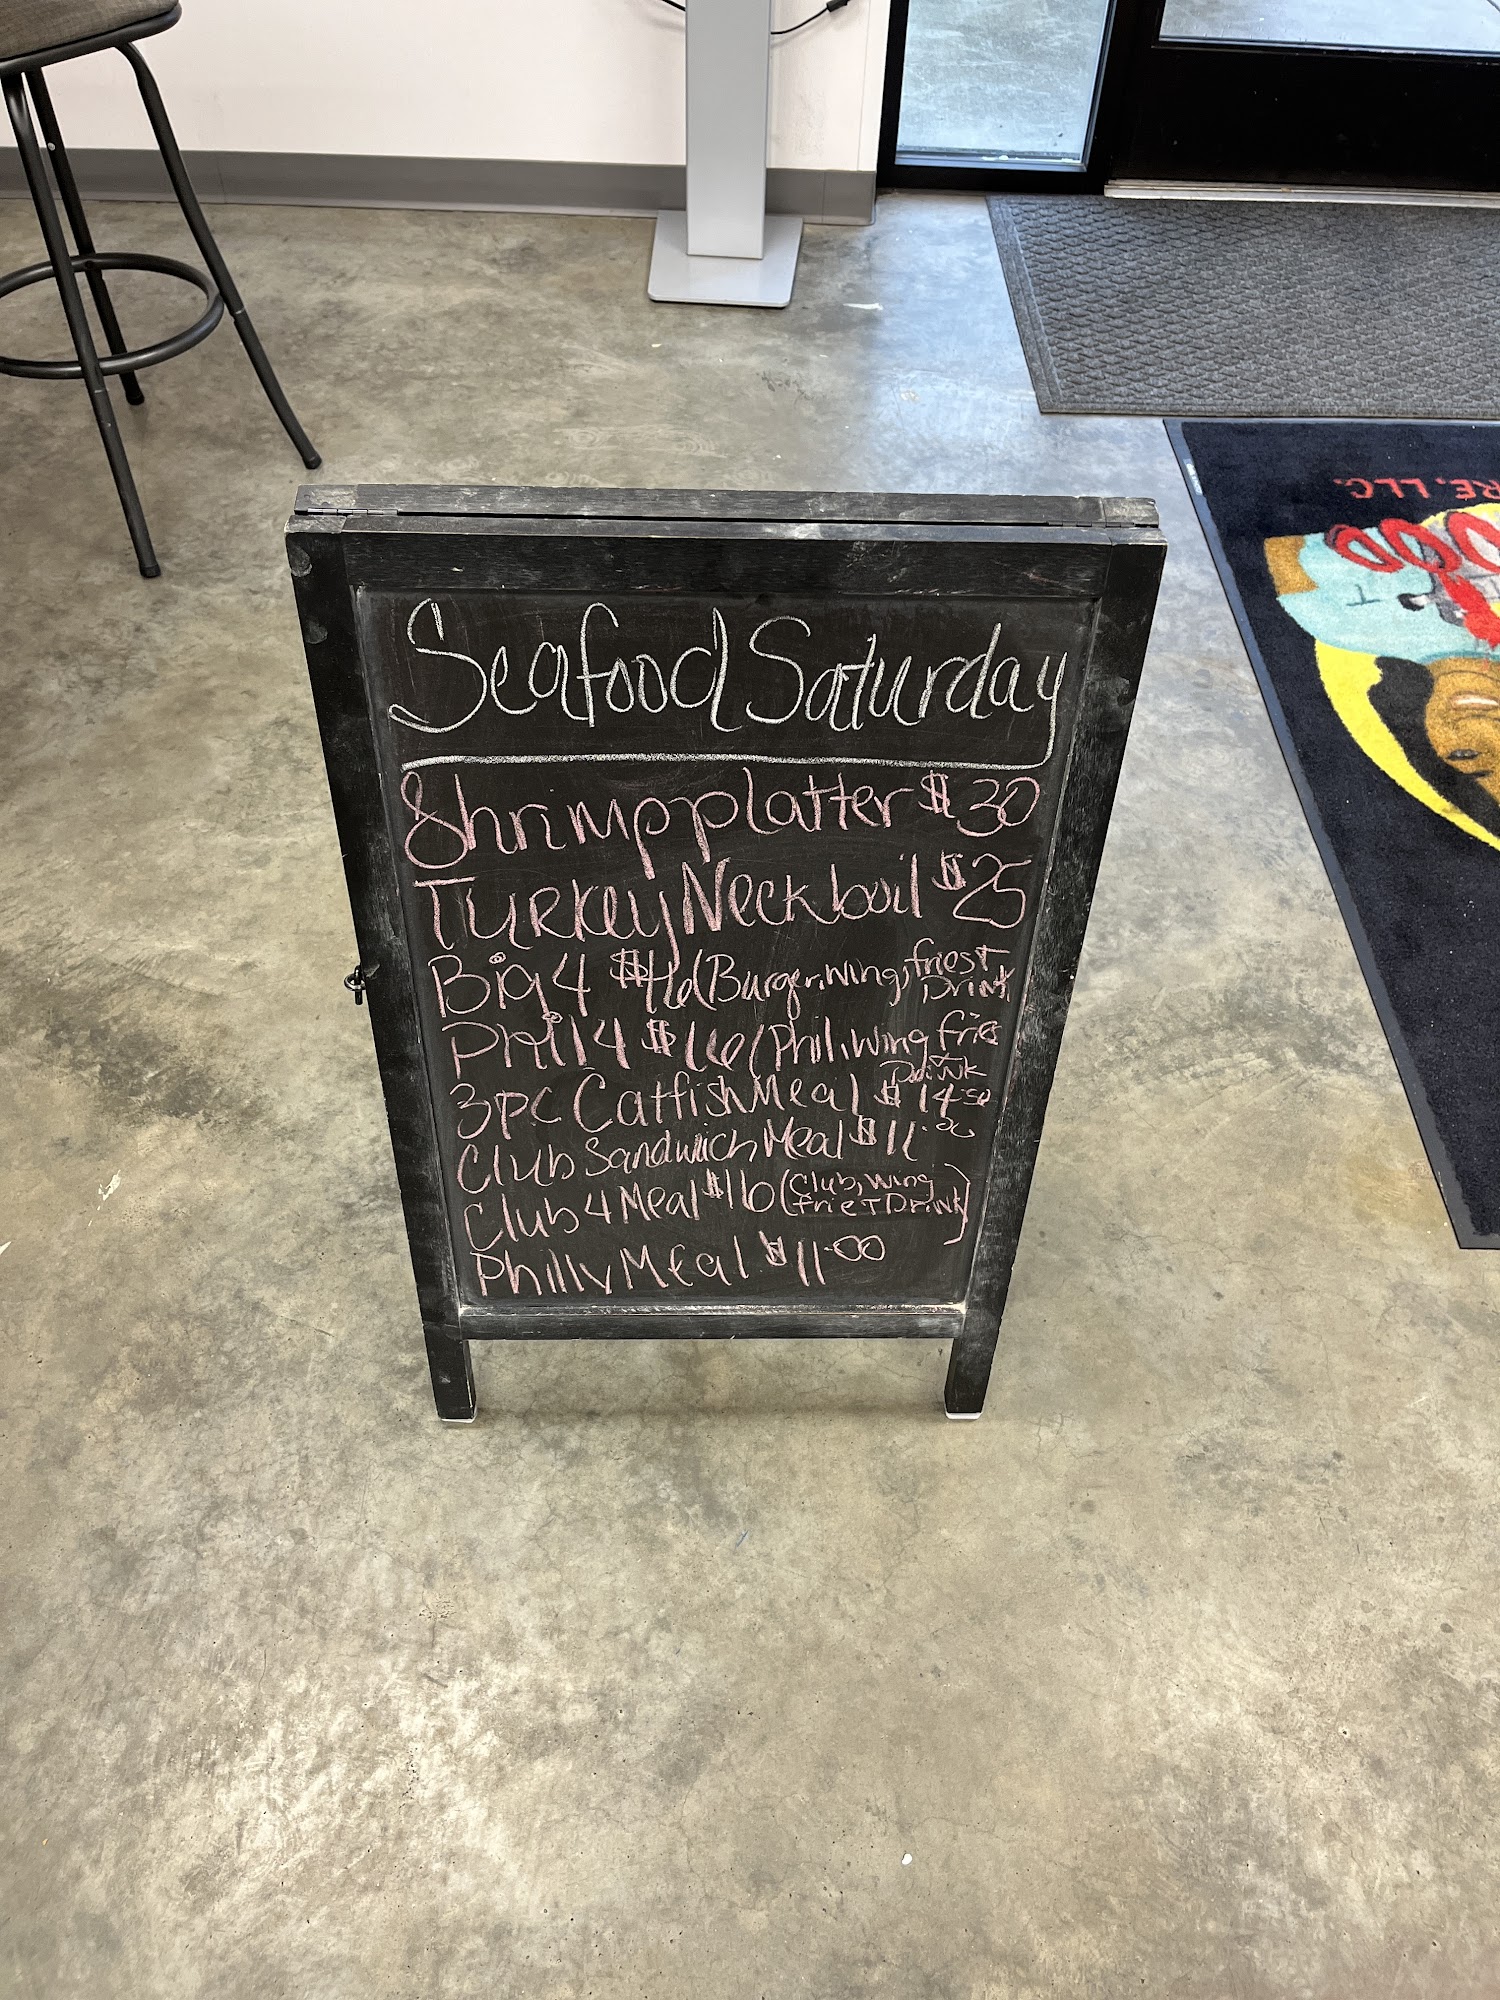 Seafood Saturday
Shrimp platter $30
Turkey Neck boil $25
Big 4 $16 (Burger, wing, fries +
Drink
Phili 4 $16 (Phili, wing fries
+ Drink
3pc Catfish Meal $14.50
Club Sandwich Meal $11.00
Club 4 Meal $16 (Club, Wing
frie + Drink)
Philly Meal $11.00
RE, LLC.